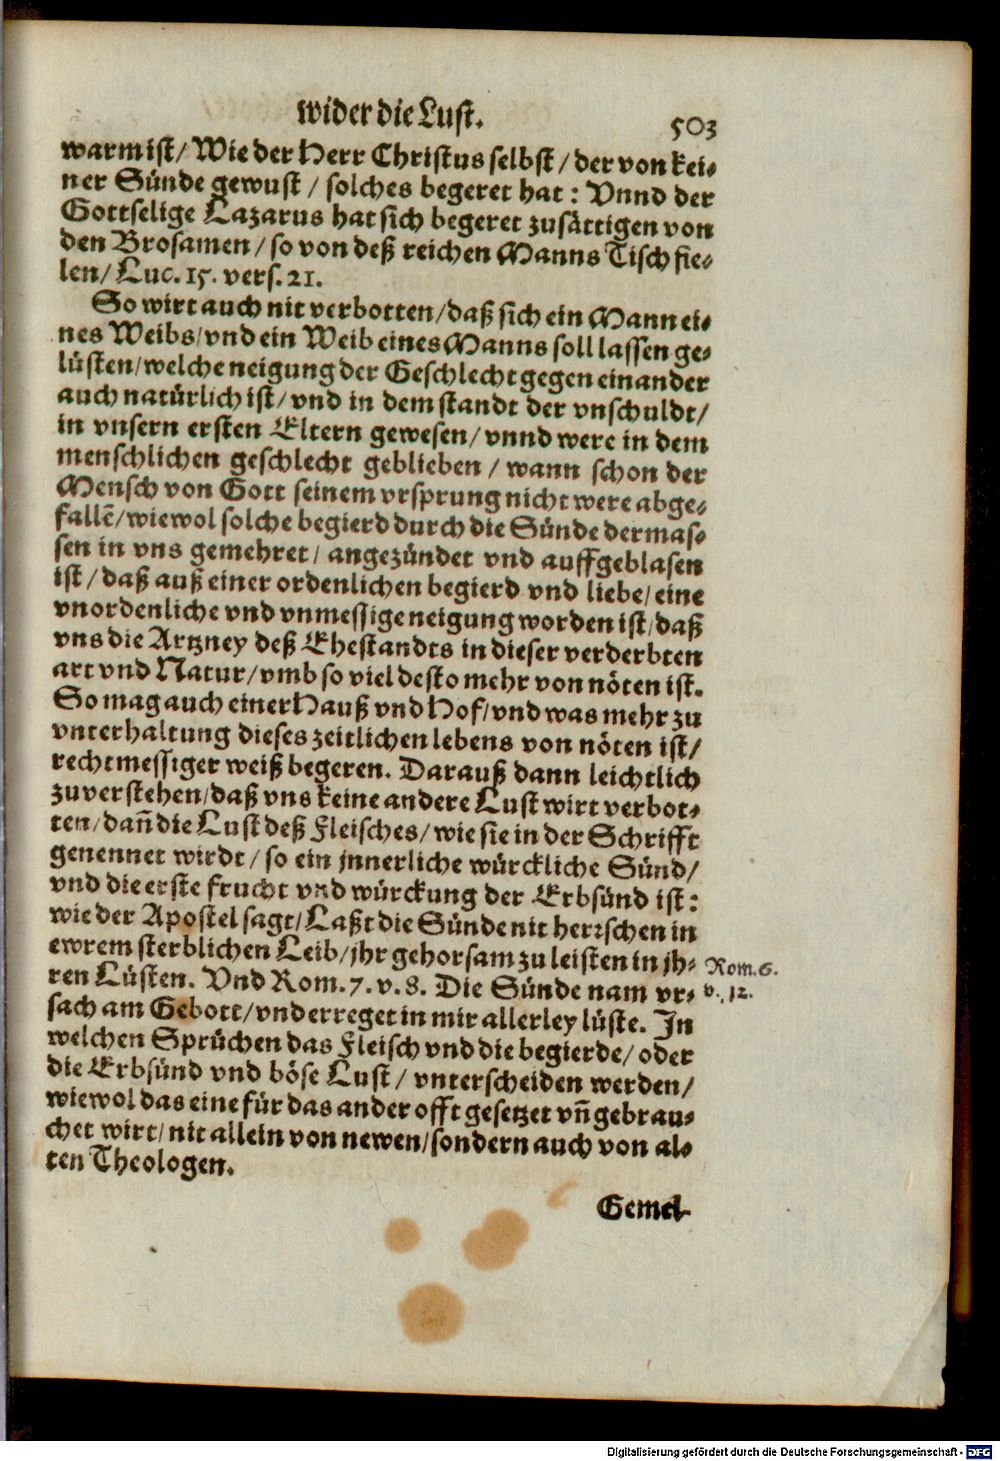 wider die Lust.
503
warm ist/ Wie der Herr Christus selbst/ der von kei-
ner Sünde gewust / solches begeret hat: Vnnd der
Gottselige Lazarus hat sich begeret zusättigen von
den Brosamen/ so von deß reichen Manns Tisch fie-
len/ Luc. 15. vers. 21.
So wirt auch nit verbotten/ daß sich ein Mann ei-
nes Weibs/ vnd ein Weib eines Manns soll lassen ge-
lüsten/ welche neigung der Geschlecht gegen einander
auch natürlich ist/ vnd in dem standt der vnschuldt/
in vnsern ersten Eltern gewesen/ vnnd were in dem
menschlichen geschlecht geblieben / wann schon der
Mensch von Gott seinem vrsprung nicht were abge-
fallē/ wiewol solche begierd durch die Sünde dermas-
sen in vns gemehret/ angezündet vnd auffgeblasen
ist/ daß auß einer ordenlichen begierd vnd liebe/ eine
vnordenliche vnd vnmessige neigung worden ist/ daß
vns die Artzney deß Ehestandts in dieser verderbten
art vnd Natur/ vmb so viel desto mehr von nöten ist.
So mag auch einer Hauß vnd Hof/ vnd was mehr zu
vnterhaltung dieses zeitlichen lebens von nöten ist/
rechtmessiger weiß begeren. Darauß dann leichtlich
zuverstehen/ daß vns keine andere Lust wirt verbot-
ten/ dañ die Lust deß Fleisches/ wie sie in der Schrifft
genennet wirdt/ so ein jnnerliche würckliche Sünd/
vnd die erste frucht vnd würckung der Erbsünd ist:
wie der Apostel sagt/ Laßt die Sünde nit herrschen in
ewrem sterblichen Leib/ jhr gehorsam zu leisten in jh-
ren Lüsten. Vnd Rom. 7. v. 8. Die Sünde nam vr-
sach am Gebott/ vnd erreget in mir allerley lüste. In
welchen Sprüchen das Fleisch vnd die begierde/ oder
die Erbsünd vnd böse Lust/ vnterscheiden werden/
wiewol das eine für das ander offt gesetzet vñ gebrau-
chet wirt/ nit allein von newen/ sondern auch von al-
ten Theologen.
Rom. 6.
v. 12.
Gemel-
Digitalisierung gefördert durch die Deutsche Forschungsgemeinschaft - DFG